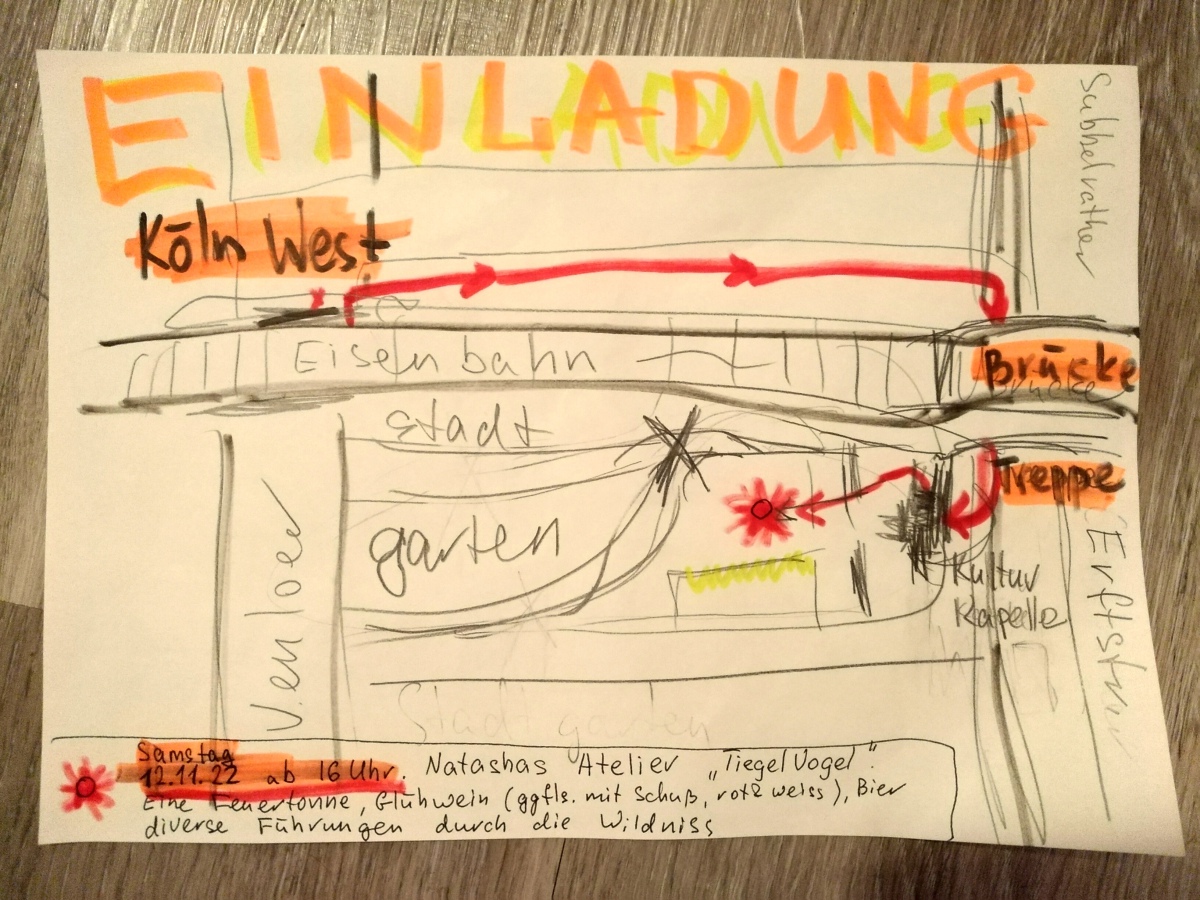 EINLADUNG
Subbelrather
Köln West
Eisenbahn
Brücke
Brücke
Stadt
garten
Treppe
Venloer
Kultur
Kapelle
Erftstr
Stadtgarten
Samstag
12.11.22 ab 16 Uhr. Natashas Atelier „TiegelVogel".
Eine Feuertonne, Glühwein (ggfls. mit Schuß, rot & weiss), Bier
diverse Führungen durch die Wildniss